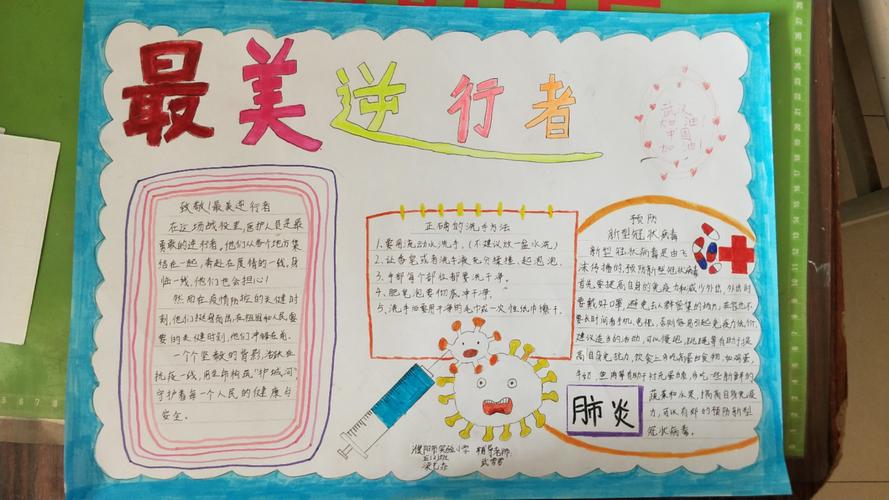 最美逆行者
武汉
加油!
中国
加油!
致敬!最美逆行者
在这场战役里,医护人员是最
勇敢的逆行者,他们从各个地方集
结在一起,奔赴在疫情的一线,身
临一线,他们也会担心!
然而在疫情防控的关键时
刻,他们挺身而出,在祖国和人民需
要的关键时刻,他们冲锋在前。
一个个坚毅的背影,
抗疫一线,用生命构筑“护城河”,
守护着每一个人民的健康与
安全。
正确的洗手方法
1.要用流动水洗手,(不建议放一盆水洗)
2.让香皂或者洗手液充分揉搓,起泡泡.
3.手部每个部位都要洗干净.
4.肥皂泡要彻底冲干净.
5.洗手后要用干净的毛巾或一次性纸巾擦干.
预防
新型冠状病毒
新型冠状病毒是由飞
沫传播的,预防新型冠状病毒
首先要提高自身的免疫力和减少外出,外出时
要戴好口罩,避免去人群密集的场所,在家也不
要长时间看手机,电视,否则容易引起免疫力低价,
建议适当的活动,可以慢跑,跳绳等有助于提
高自身免抗力,饮食上多吃高蛋白食物,如鸡蛋,
牛奶,鱼肉等有助于补充蛋白质,多吃一些新鲜的
蔬菜和水果,提高自身免疫
力,可以有好的预防新型
冠状病毒。
肺炎
濮阳市实验小学 辅导老师: